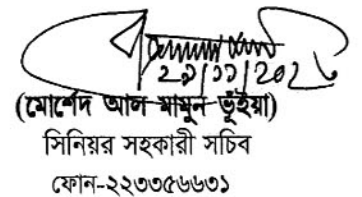 ২৯/১১/202
(মোর্শেদ আল মামুন ভূঁইয়া)
সিনিয়র সহকারী সচিব
ফোন-২২৩৩৫৬৬৩১